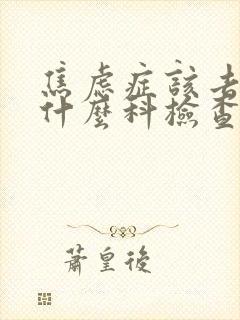 焦虑症該去
什麼科檢查
蕭皇後